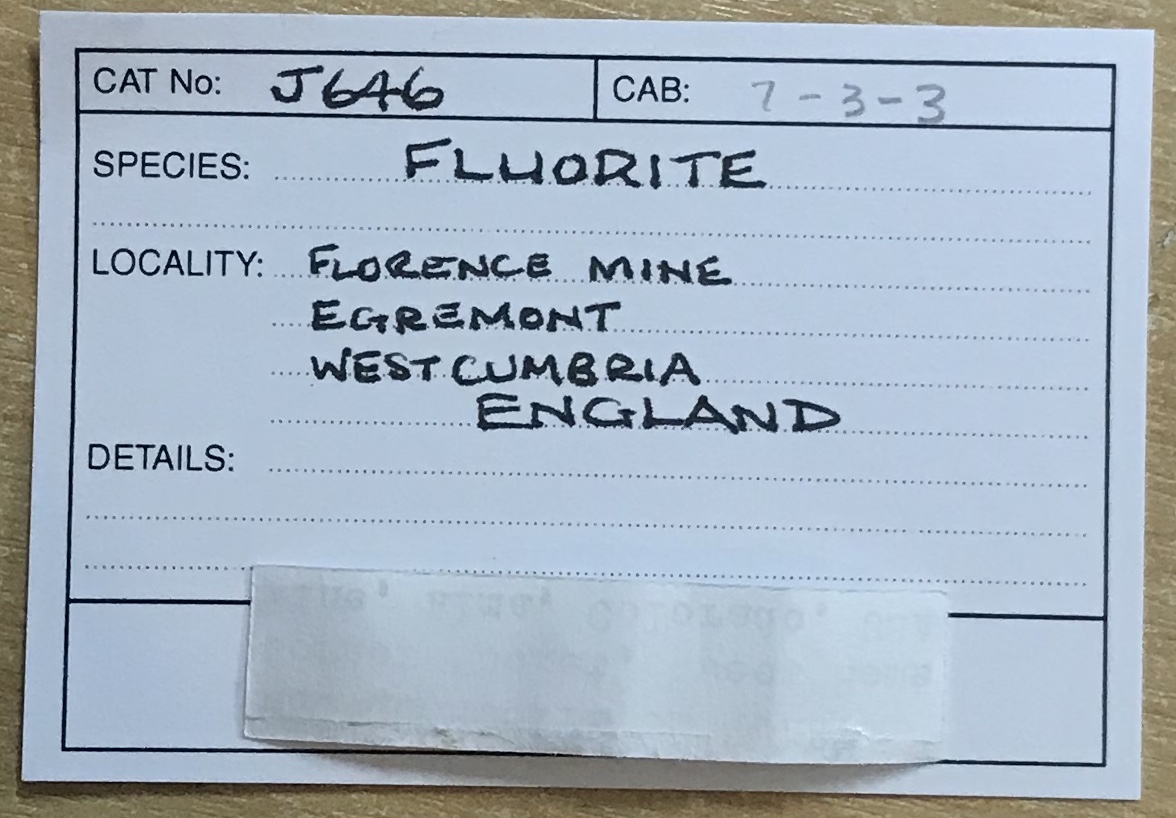 CAT No: J646 CAB: 7-3-3
SPECIES: FLUORITE
LOCALITY: FLORENCE MINE
EGREMONT
WEST CUMBRIA
ENGLAND
DETAILS: